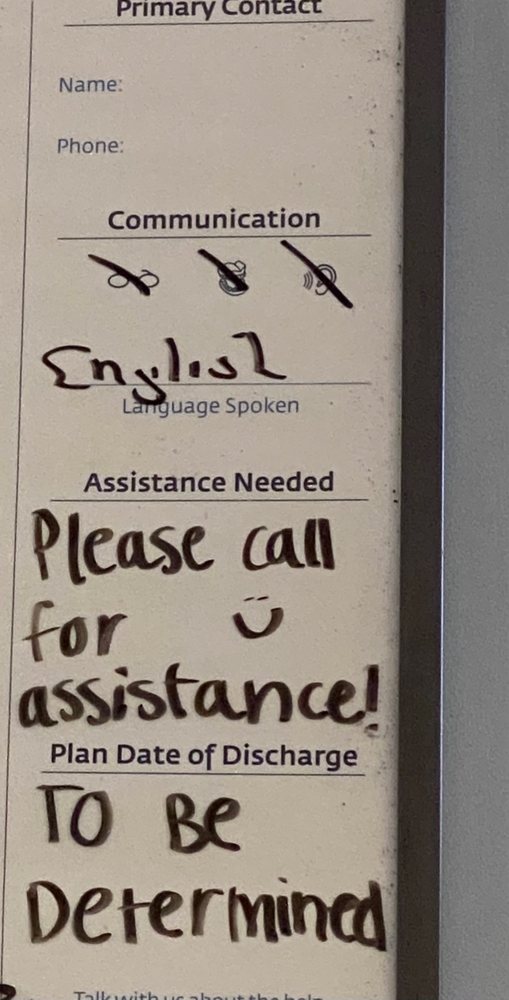 Primary Contact
Name:
Phone:
Communication
English
Language Spoken
Assistance Needed
Please call
for
assistance!
Plan Date of Discharge
To Be
Determined
Talk with us about the help